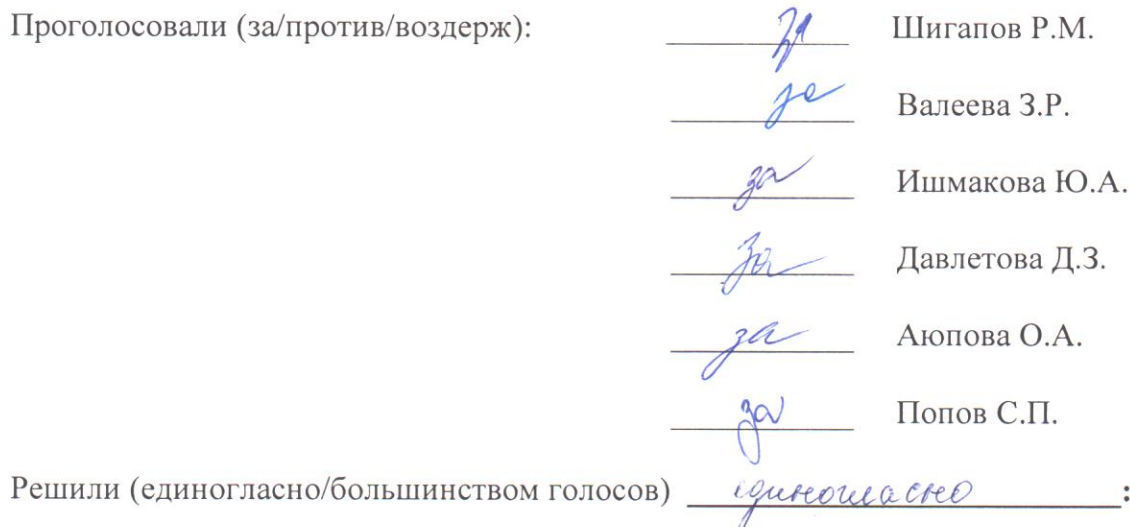 Проголосовали (за/против/воздерж): за Шигапов Р.М.
за Валеева З.Р.
за Ишмакова Ю.А.
за Давлетова Д.З.
за Аюпова О.А.
за Попов С.П.
Решили (единогласно/большинством голосов) единогласно :